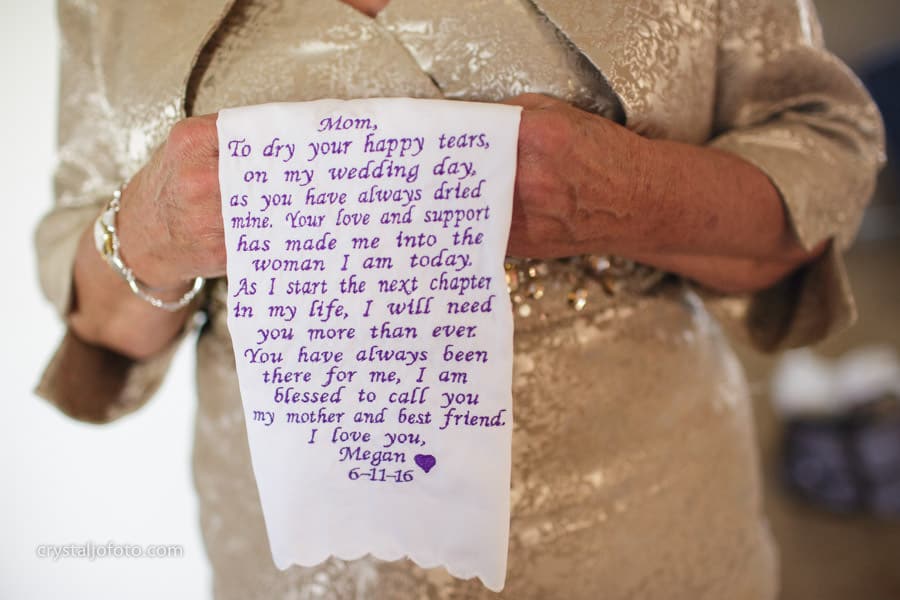 Mom,
To dry your happy tears,
on my wedding day,
as you have always dried
mine. Your love and support
has made me into the
woman I am today.
As I start the next chapter
in my life, I will need
you more than ever.
You have always been
there for me, I am
blessed to call you
my mother and best friend.
I love you,
Megan
6-11-16
crystaljofoto.com